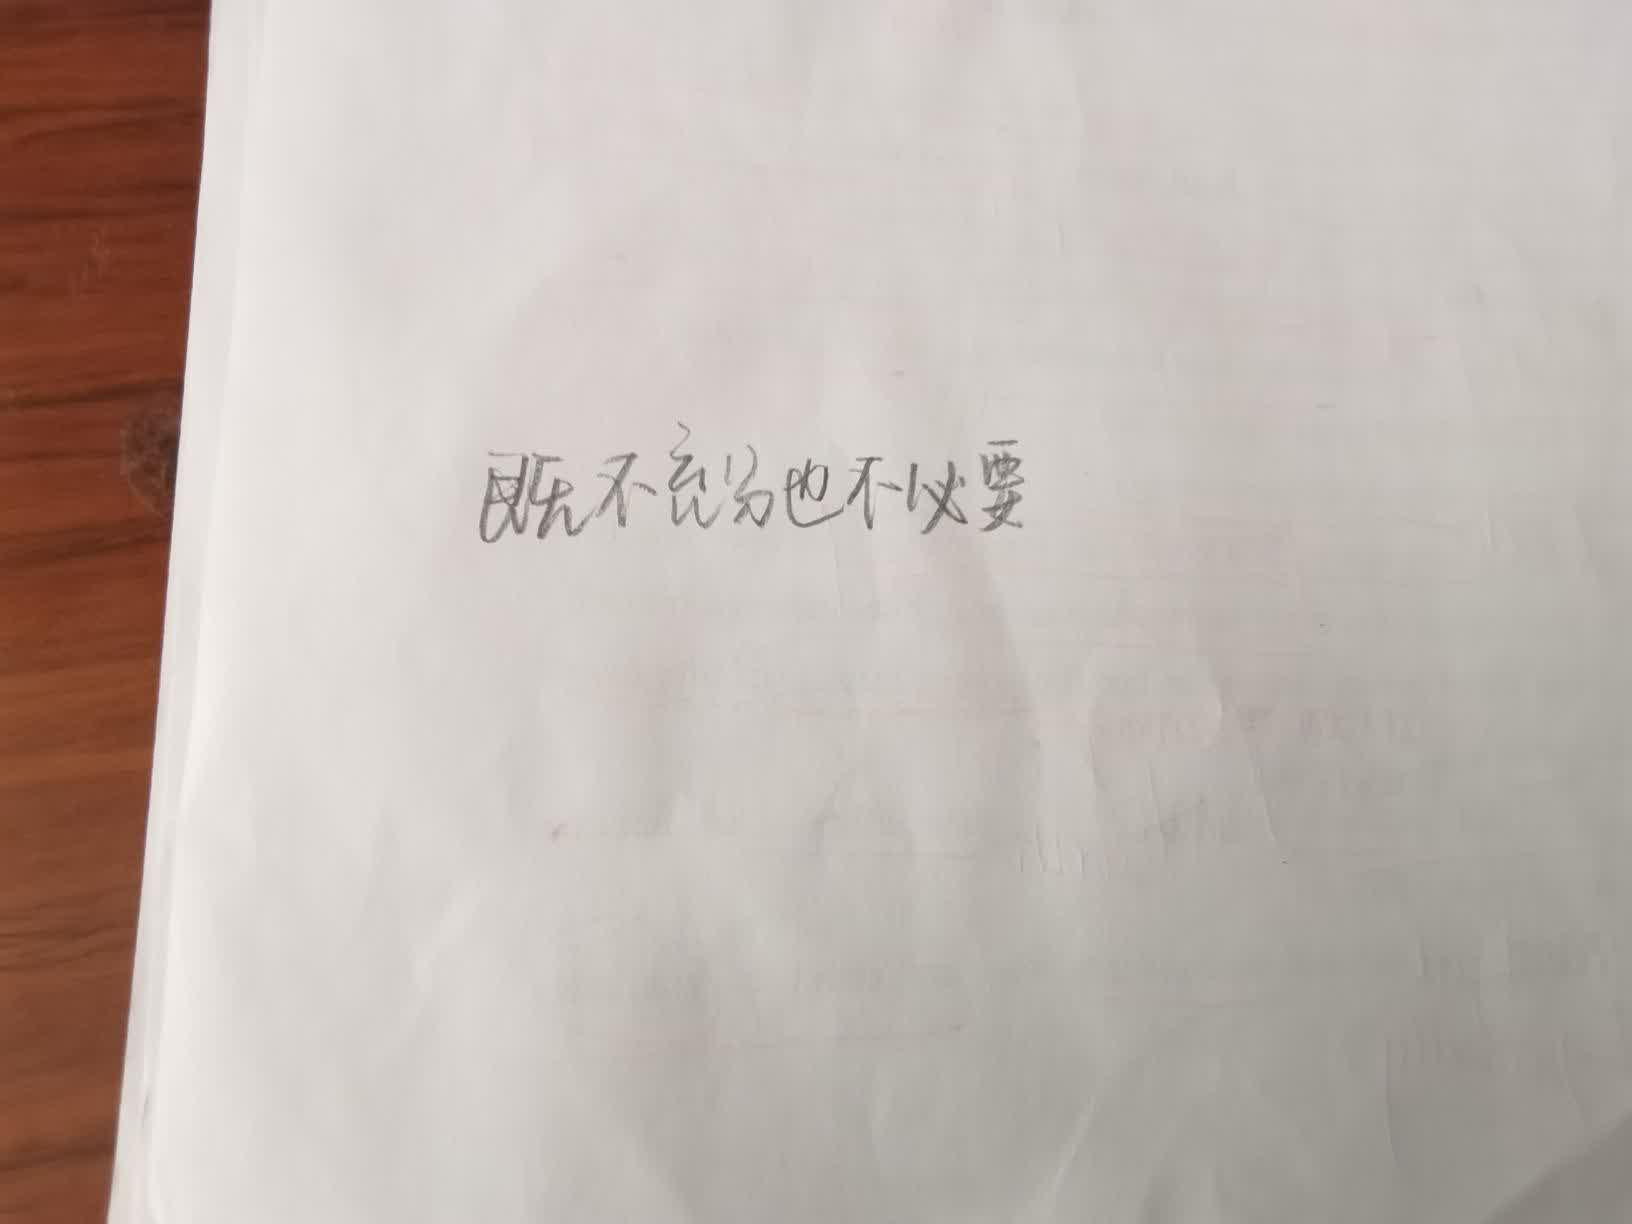 既不充分也不必要